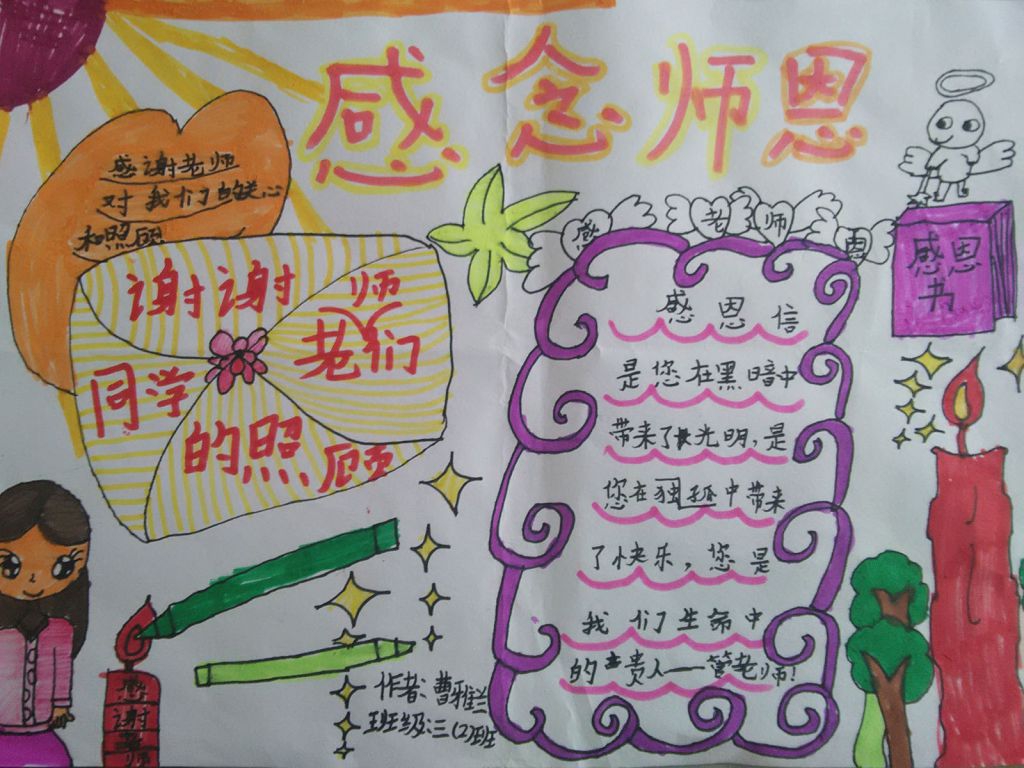 感念师恩
感谢老师
对我们的关心
和照顾
谢谢老师们
同学
的照顾
感老师恩
感恩书
感恩信
是您在黑暗中
带来了光明,是
您在独孤中带来
了快乐,您是
我们生命中
的贵人——管老师!
作者:曹雅兰
班级:三(2)班
感谢老师